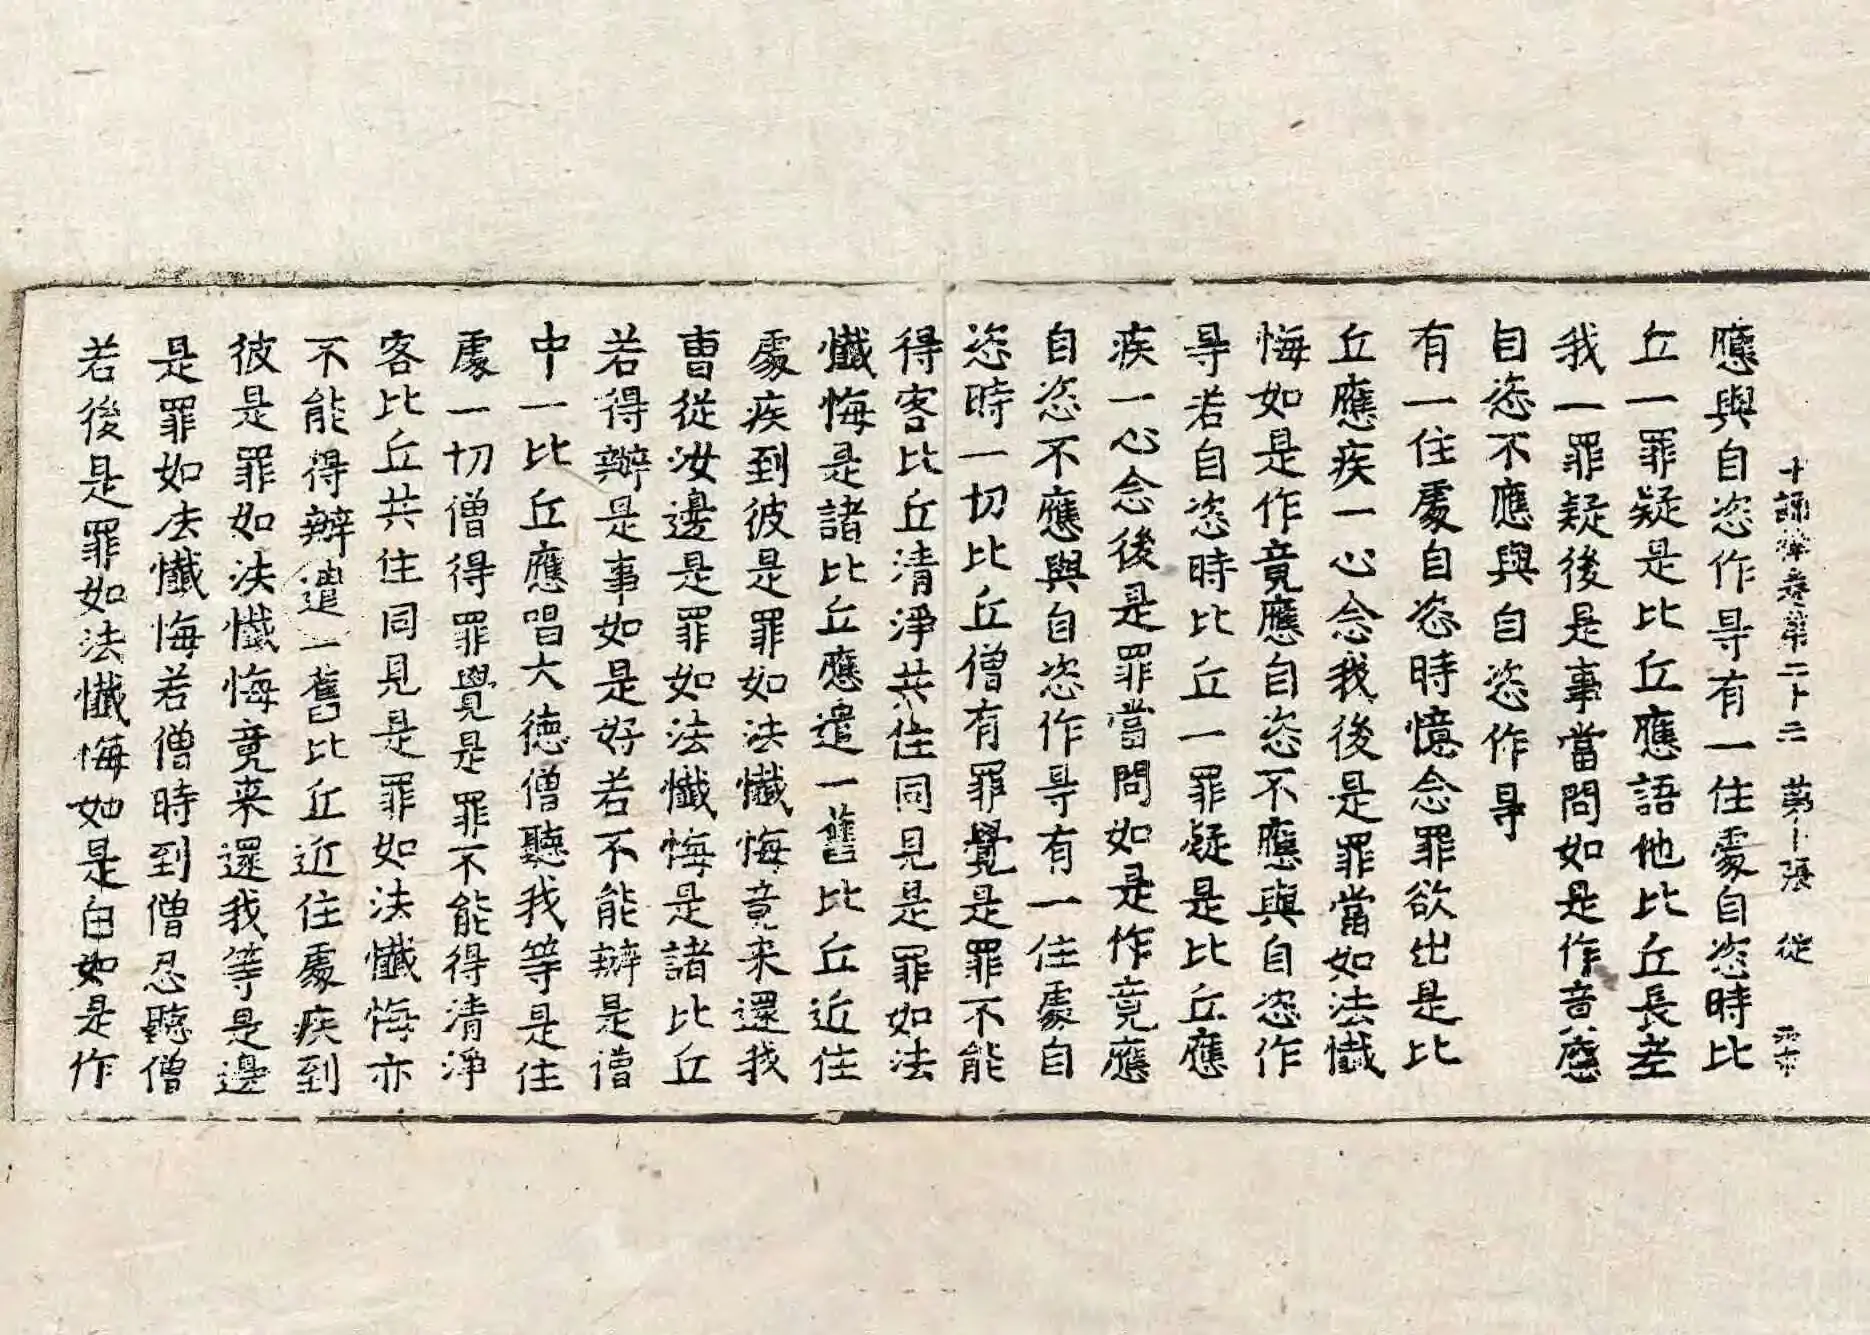 十誦律卷第二十三 第十張 從
應與自恣作㝵有一住處自恣時比
丘一罪疑是比丘應語他比丘長老
我一罪疑後是事當問如是作竟應
自恣不應與自恣作㝵
有一住處自恣時憶念罪欲出是比
丘應疾一心念我後是罪當如法懺
悔如是作竟應自恣不應與自恣作
㝵若自恣時比丘一罪疑是比丘應
疾一心念後是罪當問如是作竟應
自恣不應與自恣作㝵有一住處自
恣時一切比丘僧有罪覺是罪不能
得客比丘清淨共住同見是罪如法
懺悔是諸比丘應遣一舊比丘近住
處疾到彼是罪如法懺悔竟来還我
曹從汝邊是罪如法懺悔是諸比丘
若得辦是事如是好若不能辦是僧
中一比丘應唱大德僧聽我等是住
處一切僧得罪覺是罪不能得清淨
客比丘共住同見是罪如法懺悔亦
不能得辦遣一舊比丘近住處疾到
彼是罪如法懺悔竟来還我等是邊
是罪如法懺悔若僧時到僧忍聽僧
若後是罪如法懺悔如是白如是作